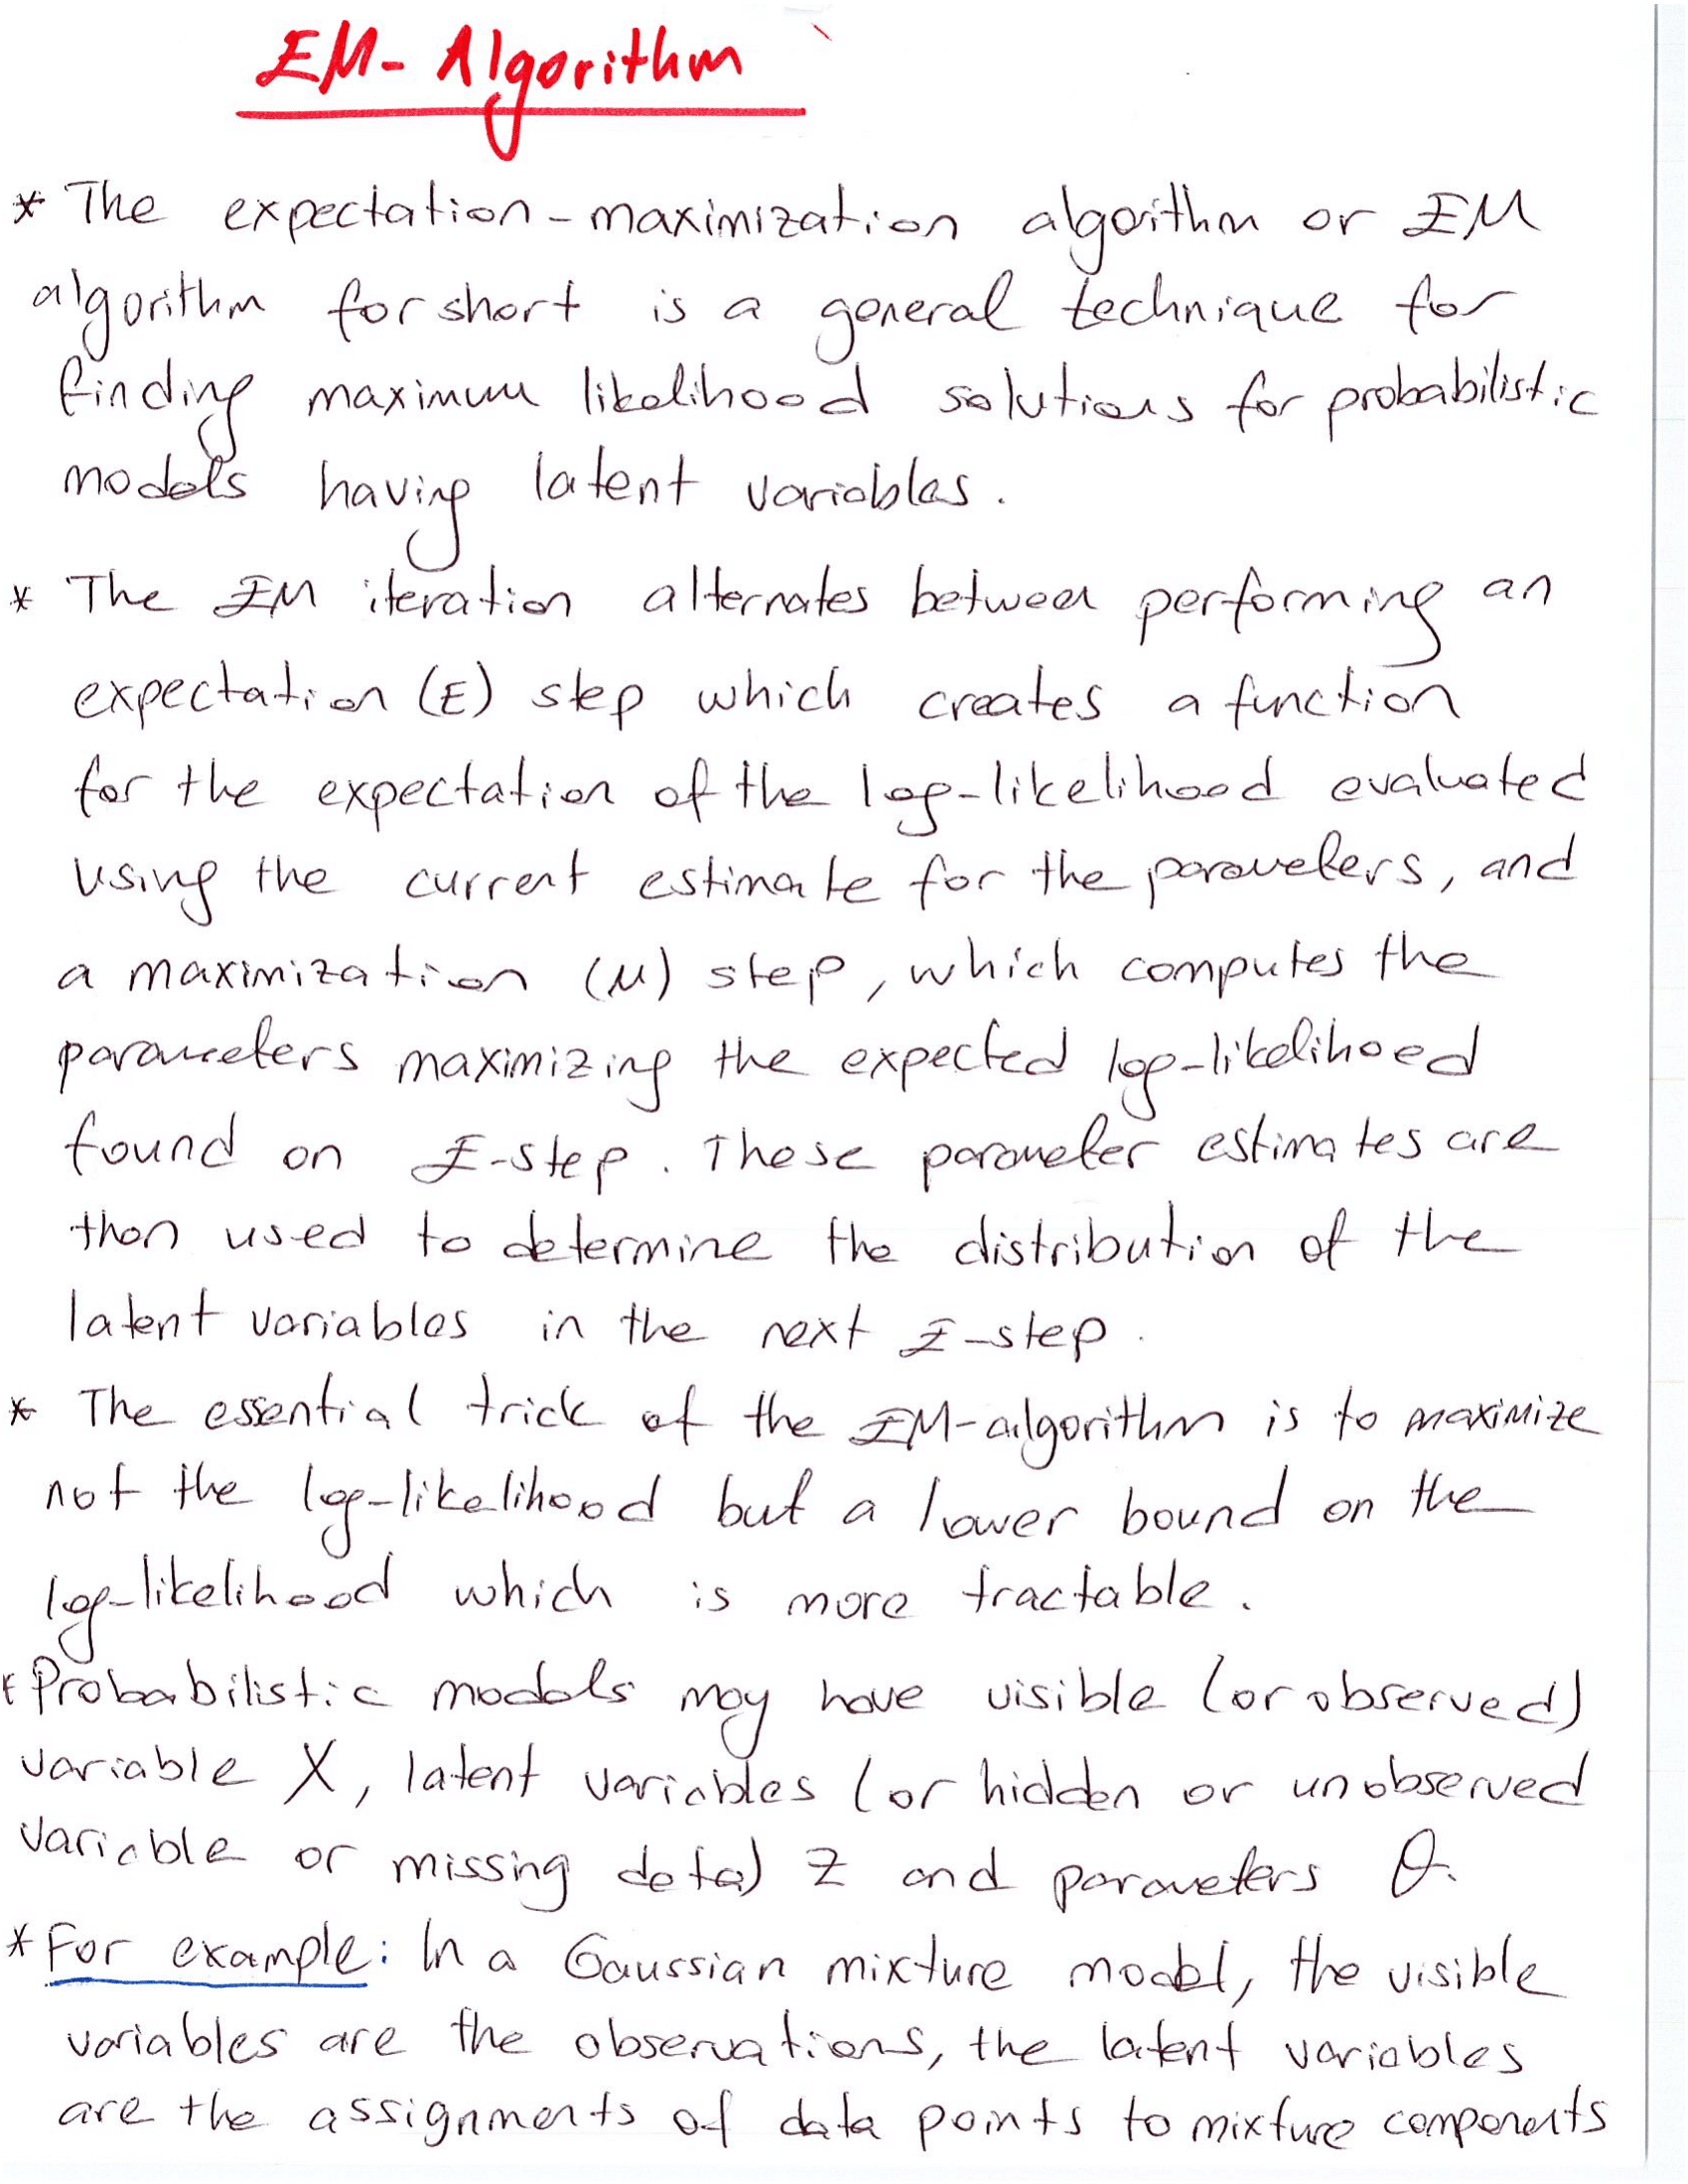 EM- Algorithm
* The expectation-maximization algorithm or EM
algorithm for short is a general technique for
finding maximum likelihood solutions for probabilistic
models having latent variables.
* The EM iteration alternates between performing an
expectation (E) step which creates a function
for the expectation of the log-likelihood evaluated
using the current estimate for the parameters, and
a maximization (M) step, which computes the
parameters maximizing the expected log-likelihood
found on E-step. These parameter estimates are
then used to determine the distribution of the
latent variables in the next E-step.
* The essential trick of the EM-algorithm is to maximize
not the log-likelihood but a lower bound on the
log-likelihood which is more tractable.
* Probabilistic models may have visible (or observed)
variable X, latent variables (or hidden or unobserved
variable or missing data) Z and parameters θ.
* For example: In a Gaussian mixture model, the visible
variables are the observations, the latent variables
are the assignments of data points to mixture components